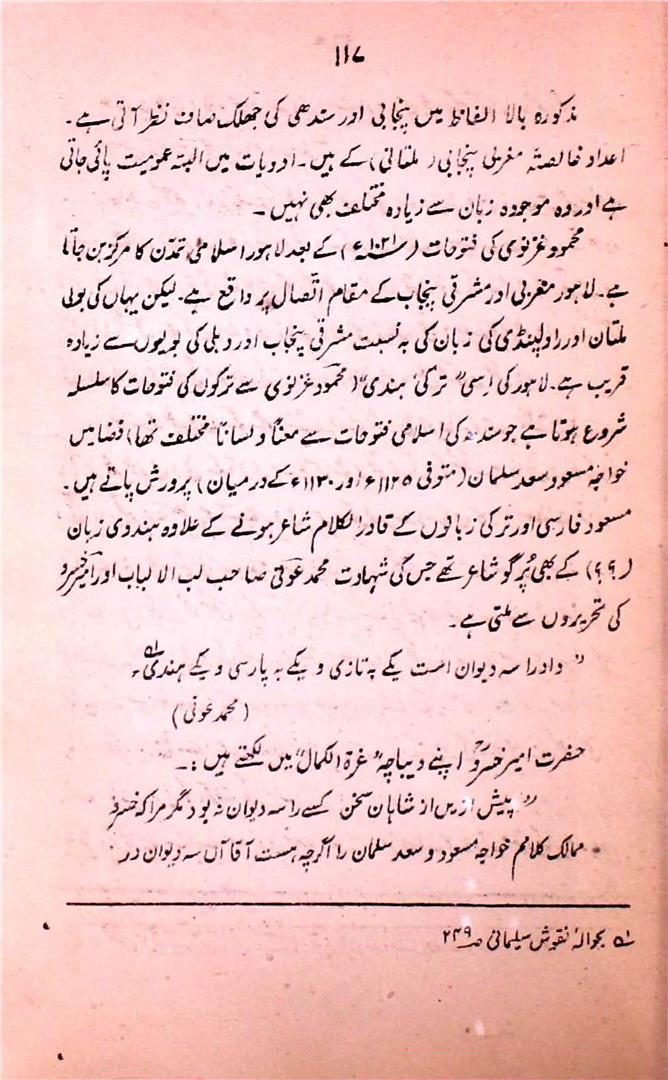 ۱۱۷
مذکورہ بالا الفاظ میں پنجابی اور سندھی کی جھلک صاف نظر آتی ہے۔
اعداد خالصتہً مغربی پنجابی (ملتانی) کے ہیں۔ ادویات میں البتہ عمومیت پائی جاتی
ہے اور وہ موجودہ زبان سے زیادہ مختلف بھی نہیں۔
محمود غزنوی کی فتوحات (۱۰۲۱ء) کے بعد لاہور اسلامی تمدّن کا مرکز بن جاتا
ہے۔ لاہور مغربی اور مشرقی پنجاب کے مقام اتّصال پر واقع ہے۔ لیکن یہاں کی بولی
ملتان اور راولپنڈی کی زبان کی بہ نسبت مشرقی پنجاب اور دہلی کی بولیوں سے زیادہ
قریب ہے۔ لاہور کی اِسی "ترکی ہندی" (محمود غزنوی سے ترکوں کی فتوحات کا سلسلہ
شروع ہوتا ہے جو سندھ کی اسلامی فتوحات سے معناً و لساناً مختلف تھا) فضا میں
خواجہ مسعود سعد سلمان (متوفی ۱۱۲۵ء اور ۱۱۳۰ء کے درمیان) پرورش پاتے ہیں۔
مسعود فارسی اور ترکی زبانوں کے قادر الکلام شاعر ہونے کے علاوہ ہندوی زبان
(؟؟) کے بھی پُرگو شاعر تھے جس کی شہادت محمد عوفی صاحب لب الالباب اور امیر خسرو
کی تحریروں سے ملتی ہے۔
"دا درا سہ دیوان است یکے بہ تازی و یکے بہ پارسی و یکے ہندی۔ ؎۱
(محمد عوفی)
حضرت امیر خسروؒ اپنے دیباچہ "غرۃ الکمال" میں لکھتے ہیں :۔
"پیش ازیں از شاہان سخن کسے را سہ دیوان نہ بود دیگر مرا کہ خسرو
ممالک کلامم خواجہ مسعود و سعد سلمان را اگرچہ ہست آقا آں سہ دیوان در
؎۱ بحوالۂ نقوش سلیمانی صـ ۲۴۹